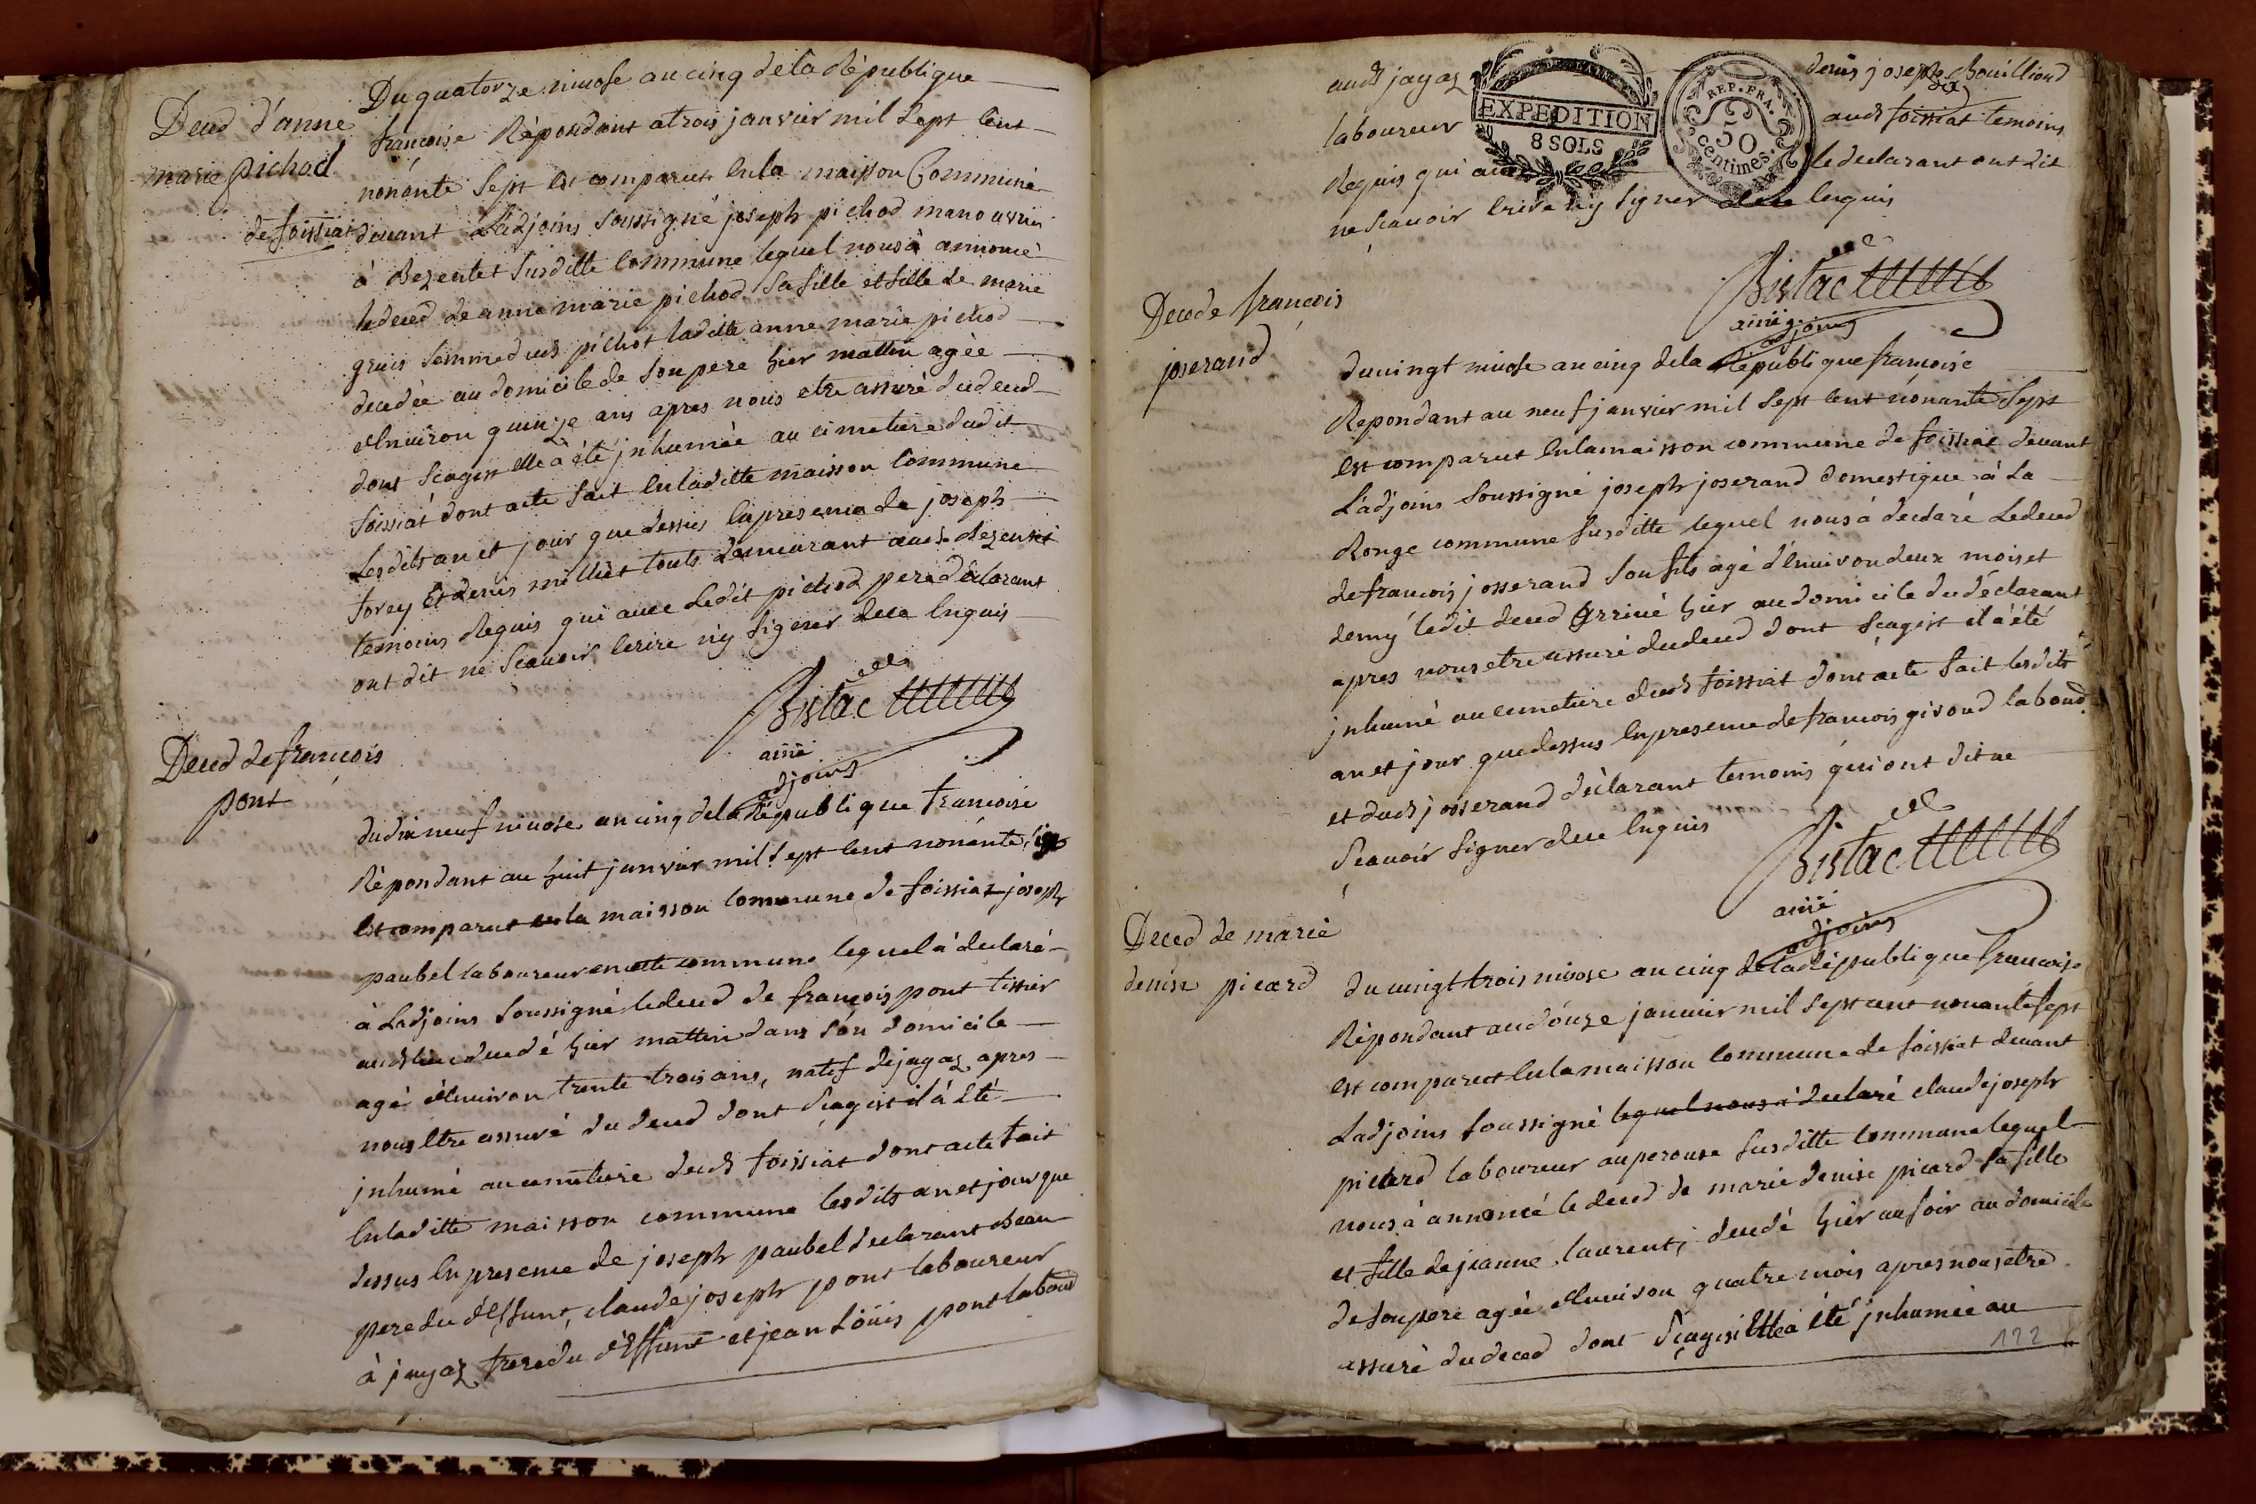 Deced d'anne
marie pichod
de foissiat
Du quatorze nivose an cinq de la République
francoise Répondant a trois janvier mil Sept Cent
nonénte Sept Est comparut En la maison Commune
devant Ladjoins Soussigné joseph pichod manouvrier
à Dezentet Susditte Commune lequel nous à annoncé
le deced de anne marie pichod Sa fille et fille de marie
femme dudt pichot laditte anne marie pichod
decedée au domicile de Son pere hier mattin agée
d'Environ quinze ans apres nous etre assuré du deced
dont S'cagist elle à été jnhumée au cimetiere dudit
foissiat dont acte fait En laditte maison Commune
Lesdits an et jour que dessus En presence de joseph
forey Et denis touts demeurant audt dezentet
temoins Requis qui avec Ledit pichod pere déclarant
ont dit ne Scavoir Ecrire ny Signer de ce Enquis
Bistac
ainé
adjoins
Deced de francois
pont
du dix neuf nivose an cinq de la République francoise
Répondant au huit janvier mil Sept Cent nonénte
Est comparut en la maison Commune de foissiat joseph
paubel laboureur en cette commune lequel à declaré
à Ladjoins Soussigné le deced de françois pont tissier
audt lieu decedé hier mattin dans son domicile
agé d'Environ trente trois ans, natif de jayaz apres
nous Etre assuré du deced dont S'cagist il à Eté
jnhumé au cemetiere dudt foissiat dont acte fait
En laditte maison commune lesdits an et jour que
dessus En presence de joseph paubel declarant Beau
pere du d'Effunt, claude joseph pont laboureur
à jayaz frere du d'Effunt et jean Loüis pont labour
audt jayaz
denis joseph Bouilliond
laboureur
audt foissiat temoins
Requis qui avec
le declarant ont dit
ne Scavoir Ecrire ny Signer de ce Enquis
EXPEDITION
8 SOLS
REP. FRA.
50
centimes
Bistac
ainé
adjoins
Deced de francois
joserand
du vingt nivose an cinq de la Republique francoise
Repondant au neuf janvier mil Sept Cent nonante Sept
Est comparut En la maisson commune de foissiat devant
L'adjoins Soussigné joseph joserand domestique à La
Ronge commune Susditte lequel nous à declaré Le deced
de francois josserand Son fils agé d'Environ deux mois et
demy ledit deced arrivé hier au domicile du déclarant
apres nous etre assuré du deced dont S'cagist il à été
jnhumé au cemetiere dudt foissiat dont acte fait lesdits
an et jour que dessus En presence de francois girond labour
et dudt josserand déclarant temoins qui ont dit ne
Scavoir Signer de ce Enquis
Bistac
ainé
adjoins
Deced de marie
denise picard
du vingt trois nivose an cinq de la République francoise
Répondant au douze janvier mil Sept cent nonante Sept
est comparut En la maisson Commune de foissiat devant
Ladjoins Soussigné lequel nous à declaré claude joseph
picard laboureur au perouse Susditte Commune lequel
nous à annoncé le deced de marie denise picard Sa fille
et fille de jeanne laurent, decedé hier au soir au domicile
de Son pere agée d'Environ quatre mois apres nous etre
assuré du deced dont S'cagist Elle à été jnhumée au
122